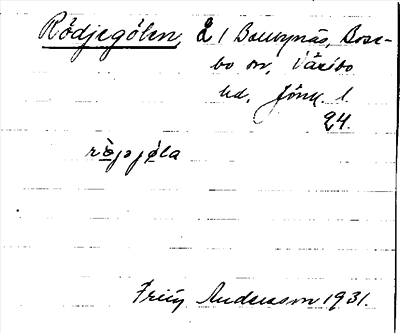 Rödjegölen, 2 / Boerynäs, Bose-
bo sn, Västbo
hd, Jönk. l.
24.
röjajöla
Fritz Andersson 1931.